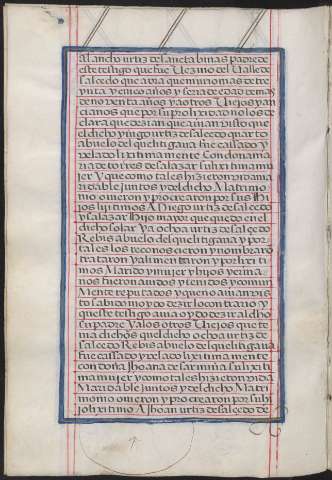 alancho urtiz de sancta binas padre de
este testigo que fue Uezino del Ualle de
salcedo que abia que murio mas de tre
ynta y cinco años y seria de edad de mas
de nobenta años y a otros Uiejos y an
cianos que por su prolixidad no los de
clara que dezian que auian visto que
el dicho yñigo urtiz de salcedo quarto
abuelo del que litigaua fue cassado y
velado lixitimamente Con dona ma
ria de torres de salazar su lixitima mu
jer Y que como tales hizieron vida ma
ridable juntos y del dicho Matrimo
nio ouieron y procrearon por sus Hi
jos lijitimos A Diego urtiz de salcedo
y salazar Hijo mayor que quedo en el
dicho solar Y a ochoa urtiz de salcedo
Rebisabuelo del que litigaua y a por
tales los reconoscieron y nombraro
trataron y alimentaron y por lixiti
mos Marido y mujer y hijos y erma
nos fueron auidos y tenidos y comun
Mente reputados y que no auian vis
to sabido ni oydo dezir lo contrario Y
que este testigo auia oydo dezir al dho
su padre Y a los otros Uiejos que te
nia dichos que el dicho ochoa urtiz de
salcedo Rebisabuelo del que litigaua
fue cassado y velado lixitimamente
con doña Jhoana de sarmiña su lixiti
ma mujer y como tales hizieron vida
Maridable juntos y del dicho Matri
monio ouieron y procrearon por su hi
jo lixitimo A Jhoan urtiz de salcedo de